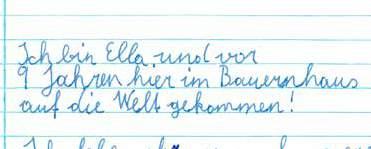 Ich bin Ella und vor
9 Jahren hier im Bauernhaus
auf die Welt gekommen!